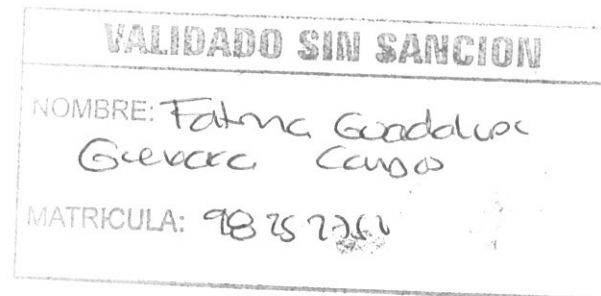 VALIDADO SIN SANCION
NOMBRE: Fatima Guadalupe
Guevara
MATRICULA: 9825